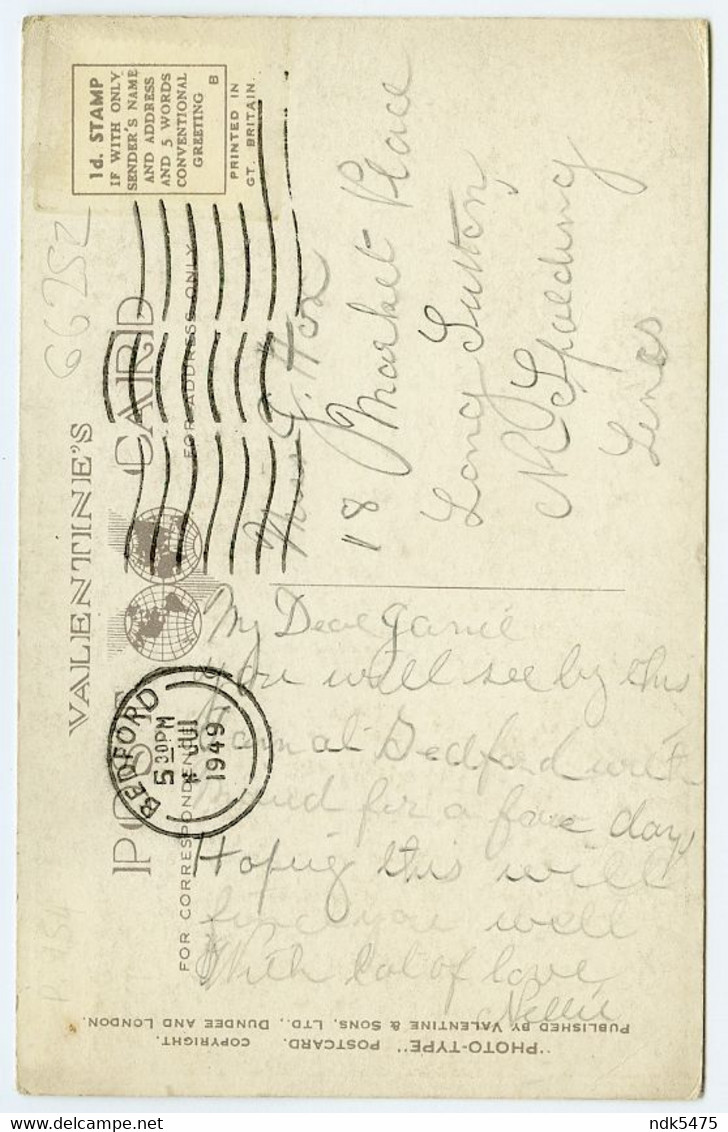 VALENTINE'S
POST CARD
FOR CORRESPONDENCE
FOR ADDRESS ONLY
1d. STAMP
IF WITH ONLY
SENDER'S NAME
AND ADDRESS
AND 5 WORDS
CONVENTIONAL
GREETING
B
PRINTED IN
GT. BRITAIN.
66252
BEDFORD
5 30PM
JUL
1949
My Dear Janie
you will see by this
I am at Bedford with
for a fове days
Hoping this will
find you well
With lot of love
Nellie
J. Hox
18 Market Place
Long Sutton
Nr Spalding
Lincs
"PHOTO-TYPE" POSTCARD. COPYRIGHT.
PUBLISHED BY VALENTINE & SONS, LTD., DUNDEE AND LONDON.
ndk5475